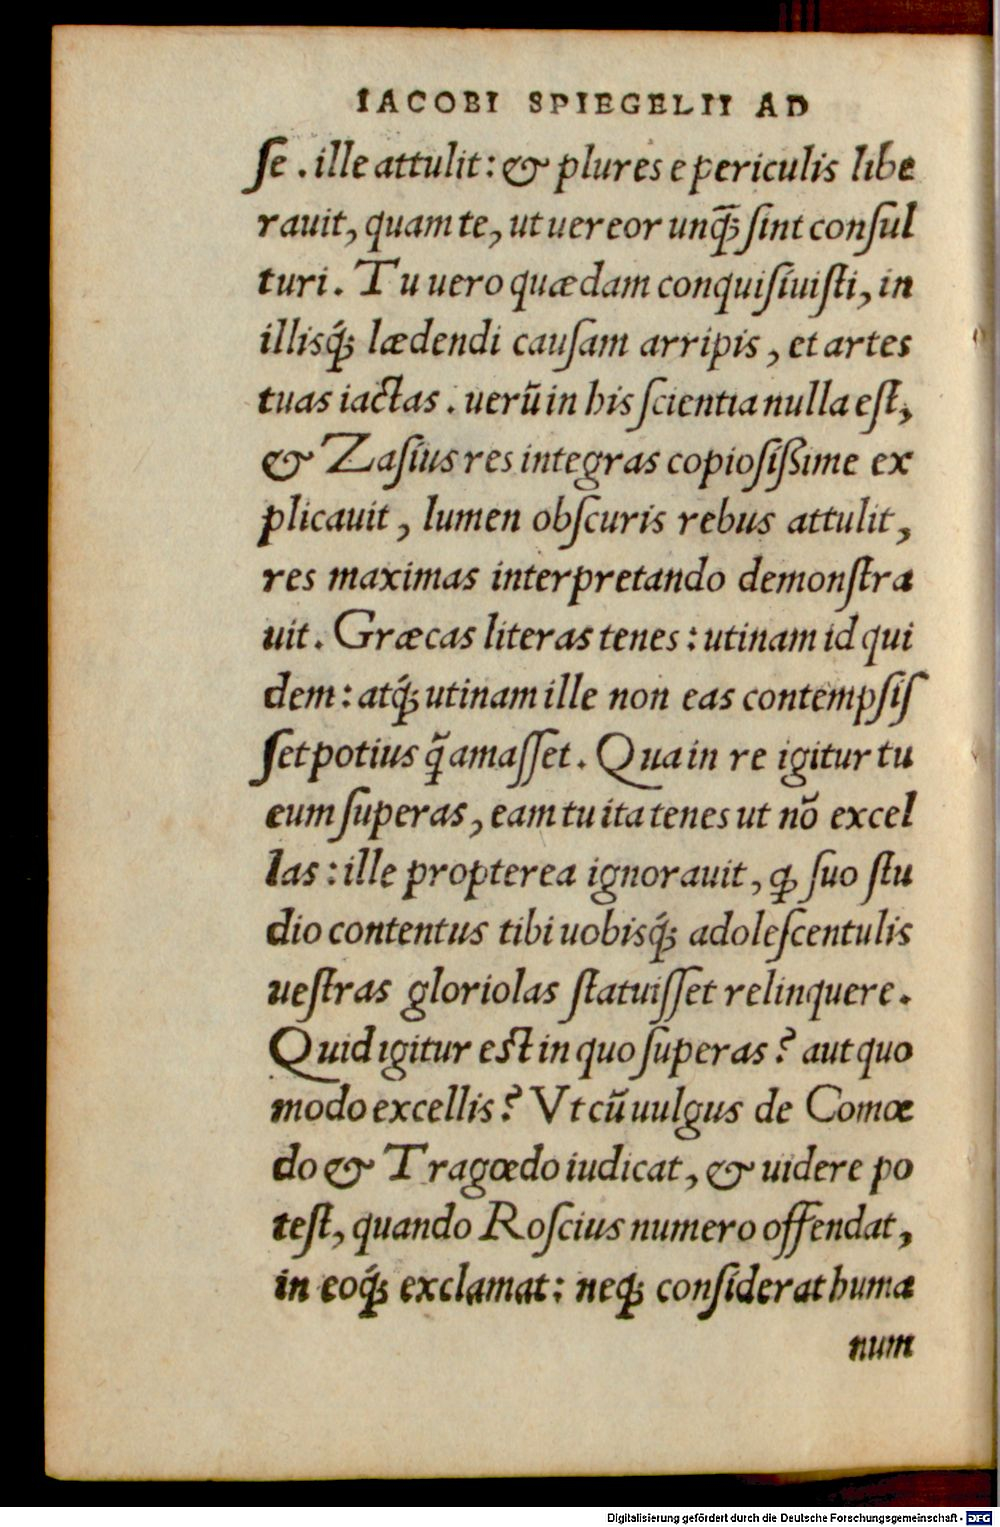 IACOBI SPIEGELII AD
ſe. ille attulit: & plures e periculis libe
rauit, quam te, ut uereor unq̃ ſint conſul
turi. Tu uero quædam conquiſiuiſti, in
illisq́; lædendi cauſam arripis, et artes
tuas iactas. uerũ in his ſcientia nulla eſt,
& Zaſius res integras copioſißime ex
plicauit, lumen obſcuris rebus attulit,
res maximas interpretando demonſtra
uit. Græcas literas tenes: utinam id qui
dem: atq́; utinam ille non eas contempſiſ
ſet potius q̃ amaſſet. Qua in re igitur tu
eum ſuperas, eam tu ita tenes ut nõ excel
las: ille propterea ignorauit, ꝙ ſuo ſtu
dio contentus tibi uobisq́; adoleſcentulis
ueſtras gloriolas ſtatuiſſet relinquere.
Quid igitur eſt in quo ſuperas? aut quo
modo excellis? Vt cũ uulgus de Comœ
do & Tragœdo iudicat, & uidere po
teſt, quando Roſcius numero offendat,
in eoq́; exclamat: neq; conſiderat huma
num
Digitalisierung gefördert durch die Deutsche Forschungsgemeinschaft - DFG